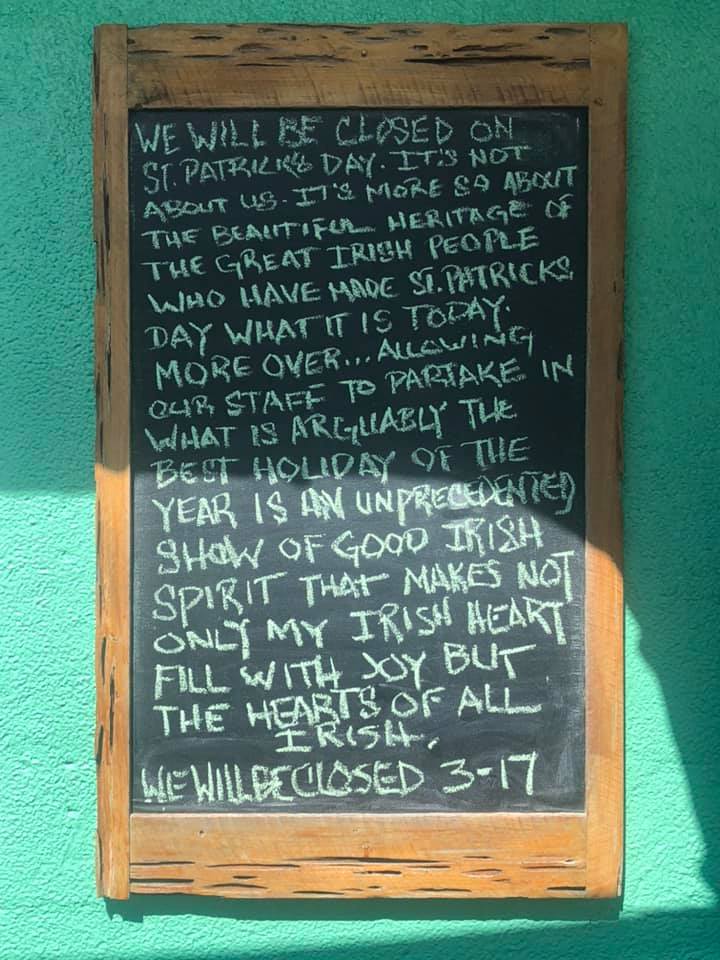 WE WILL BE CLOSED ON
ST. PATRICKS DAY. IT'S NOT
ABOUT US. IT'S MORE SO ABOUT
THE BEAUTIFUL HERITAGE OF
THE GREAT IRISH PEOPLE
WHO HAVE MADE ST. PATRICKS
DAY WHAT IT IS TODAY.
MORE OVER... ALLOWING
OUR STAFF TO PARTAKE IN
WHAT IS ARGUABLY THE
BEST HOLIDAY OF THE
YEAR IS AN UNPRECEDENTED
SHOW OF GOOD IRISH
SPIRIT THAT MAKES NOT
ONLY MY IRISH HEART
FILL WITH JOY BUT
THE HEARTS OF ALL
IRISH.
WE WILL BE CLOSED 3-17